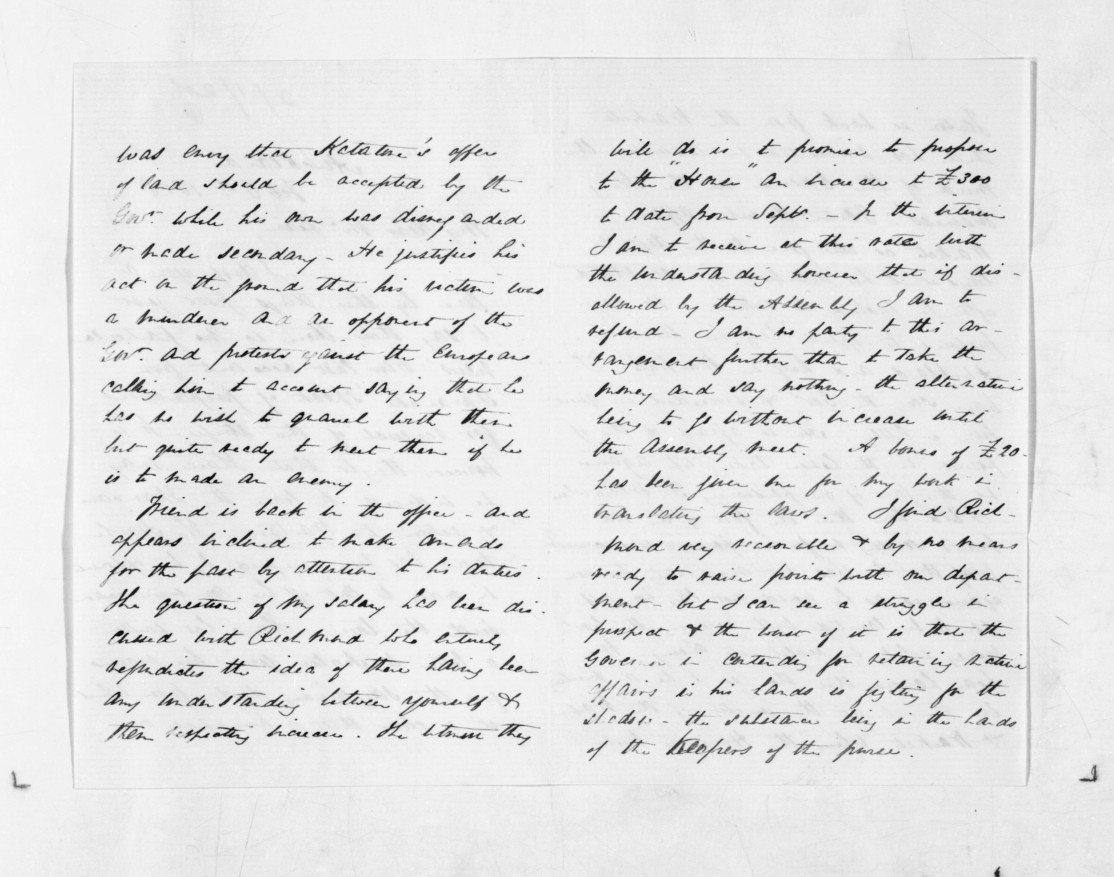 was envy that Katatore's offer
of land should be accepted by the
Govr. while his own was disregarded
or made secondary - He justifies his
act on the ground that his victim was
a murderer and an opponent of the
Govr. and protests against the Europeans
calling him to account saying that he
has no wish to quarrel with them
but quite ready to meet them if he
is to made an enemy.
Friend is back in the office - and
appears inclined to make amends
for the past by attention to his duties.
The question of my salary has been dis-
cussed with Richmond who entirely
repudiates the idea of there having been
any understanding between yourself &
them respecting increase. The utmost they
will do is to promise to propose
to the "House" an increase to £300
to date from Septr. - In the interim
I am to receive at this rate with
the understanding however that if dis-
allowed by the Assembly I am to
refund - I am no party to this ar-
rangement further than to take the
money and say nothing - the alternative
being to go without increase until
the Assembly meet. A bonus of £20-
has been given me for my work in
translating the laws. I find Rich-
mond very reasonable & by no means
ready to raise points with our depart-
ment - but I can see a struggle in
prospect & the worst of it is that the
Governor in contending for retaining native
affairs in his hands is fighting for the
shadow - the substance being in the hands
of the keepers of the purse.